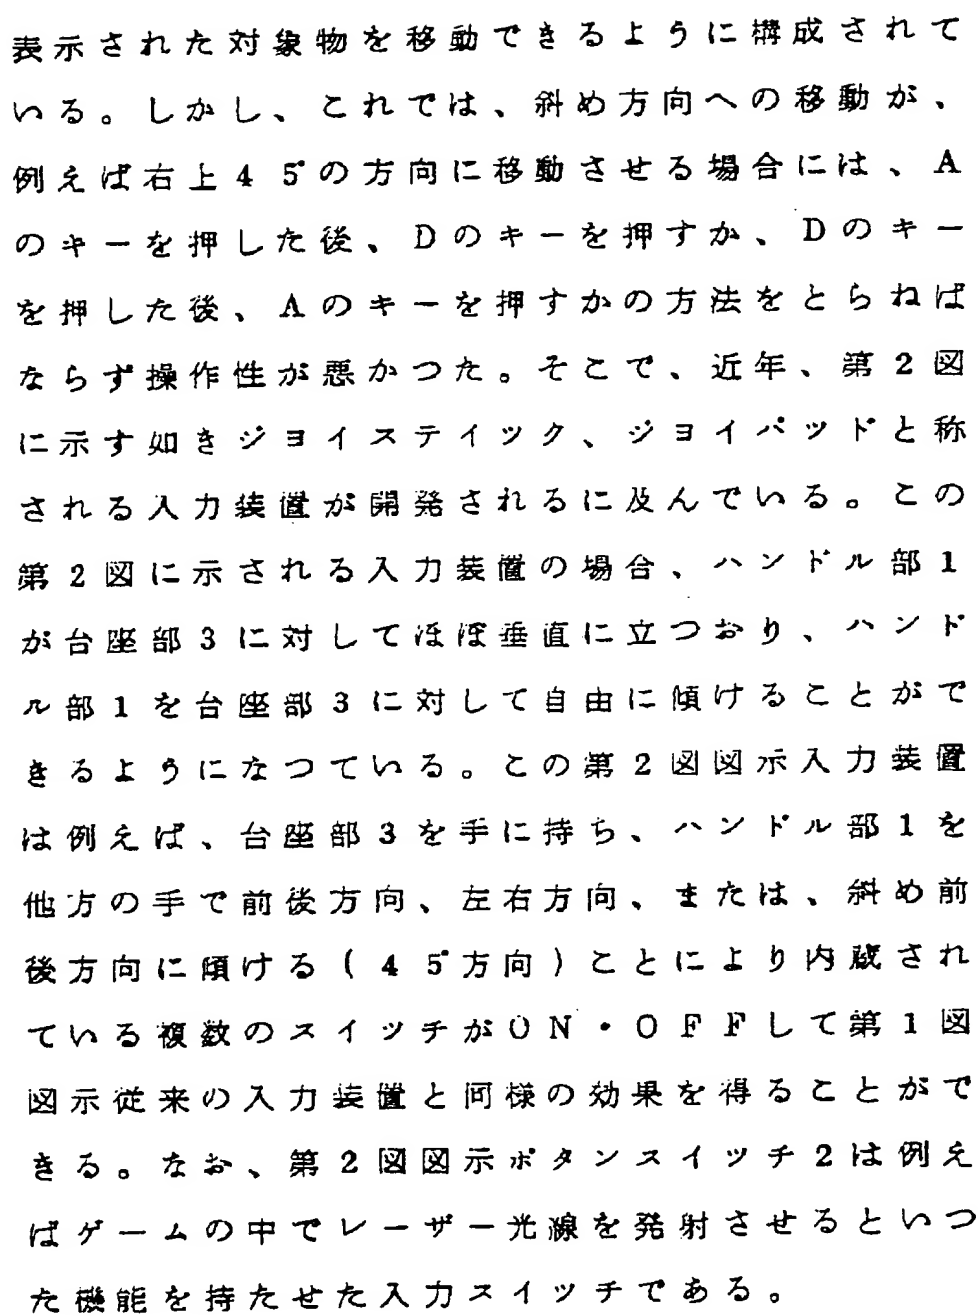 表示された対象物を移動できるように構成されて
いる。しかし、これでは、斜め方向への移動が、
例えば右上45°の方向に移動させる場合には、A
のキーを押した後、Dのキーを押すか、Dのキー
を押した後、Aのキーを押すかの方法をとらねば
ならず操作性が悪かつた。そこで、近年、第2図
に示す如きジョイスティック、ジョイパッドと称
される入力装置が開発されるに及んでいる。この
第2図に示される入力装置の場合、ハンドル部1
が台座部3に対してほぼ垂直に立つおり、ハンド
ル部1を台座部3に対して自由に傾けることがで
きるようになつている。この第2図図示入力装置
は例えば、台座部3を手に持ち、ハンドル部1を
他方の手で前後方向、左右方向、または、斜め前
後方向に傾ける(45°方向)ことにより内蔵され
ている複数のスイッチがON・OFFして第1図
図示従来の入力装置と同様の効果を得ることがで
きる。なお、第2図図示ボタンスイッチ2は例え
ばゲームの中でレーザー光線を発射させるといつ
た機能を持たせた入力スイッチである。